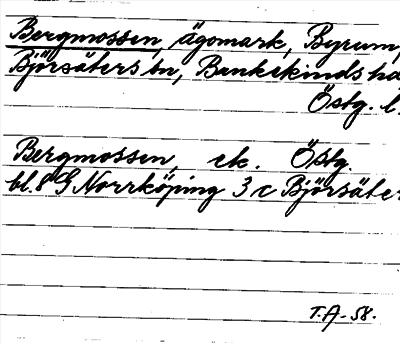 Bergmossen, ägomark, Byrum,
Björsäters sn, Bankekinds hd
Östg. l.
Bergmossen, ek. Östg.
bl. 8 G Norrköping 3 c Björsäter
T.A. -58.